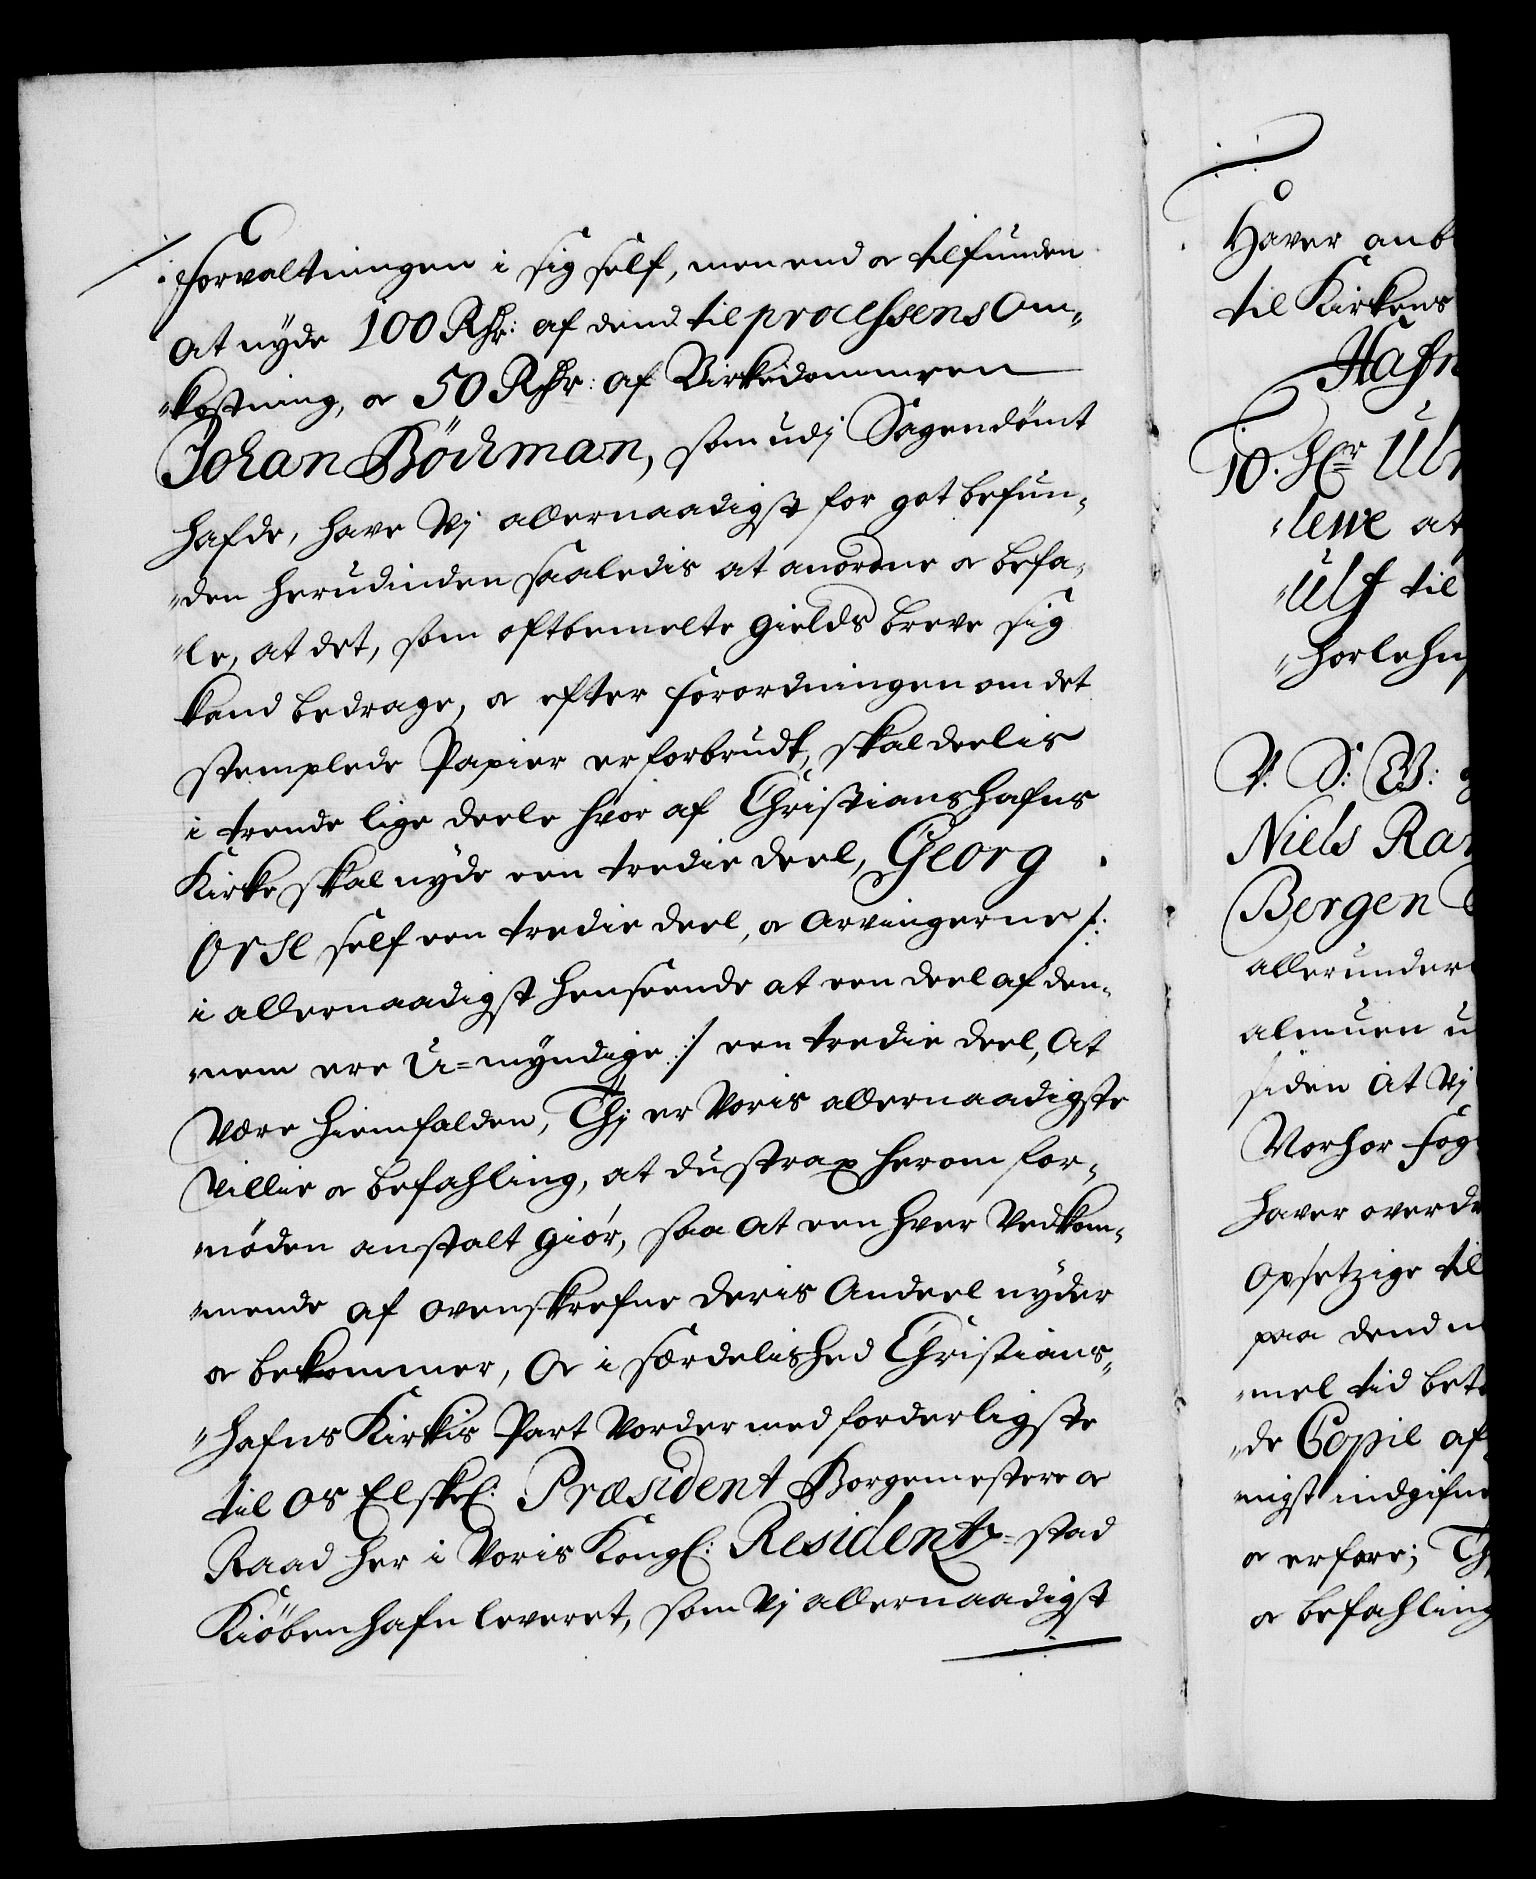 forvaltningen i sig self, men end og tilfunden
at nyde 100 Rdr: af dend til processens Om„
„kostning, og 50 Rdr: af Birkedommeren
Johan Böckman, som udj Sagen dömt
hafde, have Vj allernaadigst for got befun„
„den herudinden saaledis at anordne og befa„
„le, at det, som oftbemelte gields breve sig
kand bedrage, og efter forordningen om det
stemplede Papier er forbrudt, skal deelis
i trende lige deele hvor af Christianshafns
Kirke skal nyde een tredie deel, Georg
Orse self een tredie deel, og Arvingerne /:
i allernaadigst henseende at een deel af den„
„nem ere U=myndige :/ een tredie deel, At
være hiemfalden, Thj er Voris allernaadigste
Villie og befahling, at du strax herom for„
„nöden anstalt giör, saa at een hver Vedkom„
„mende af ovenskrefne deris Andeel nyder
og bekommer, Og i særdelished Christians„
„hafns Kirkis Part Vorder med forderligste
til Os Elskel: Præsident Borgemestere og
Raad her i Voris Kongl: Residentz=stad
Kiöbenhafn leveret, som Vj allernaadigst
Haver anb
til Kirkens
Hafn
10. Hr Ul
„lewe at
„Ulf til
„horlehn
V. S: B:
Niels Ra
Bergen
allerunder
almuen u
siden at Vj
Vorhor fog
haver overd
Opsetzige til
paa dend
„mel tid bet
„de Copie af
nigst indgifn
og erfare; Th
og befahling